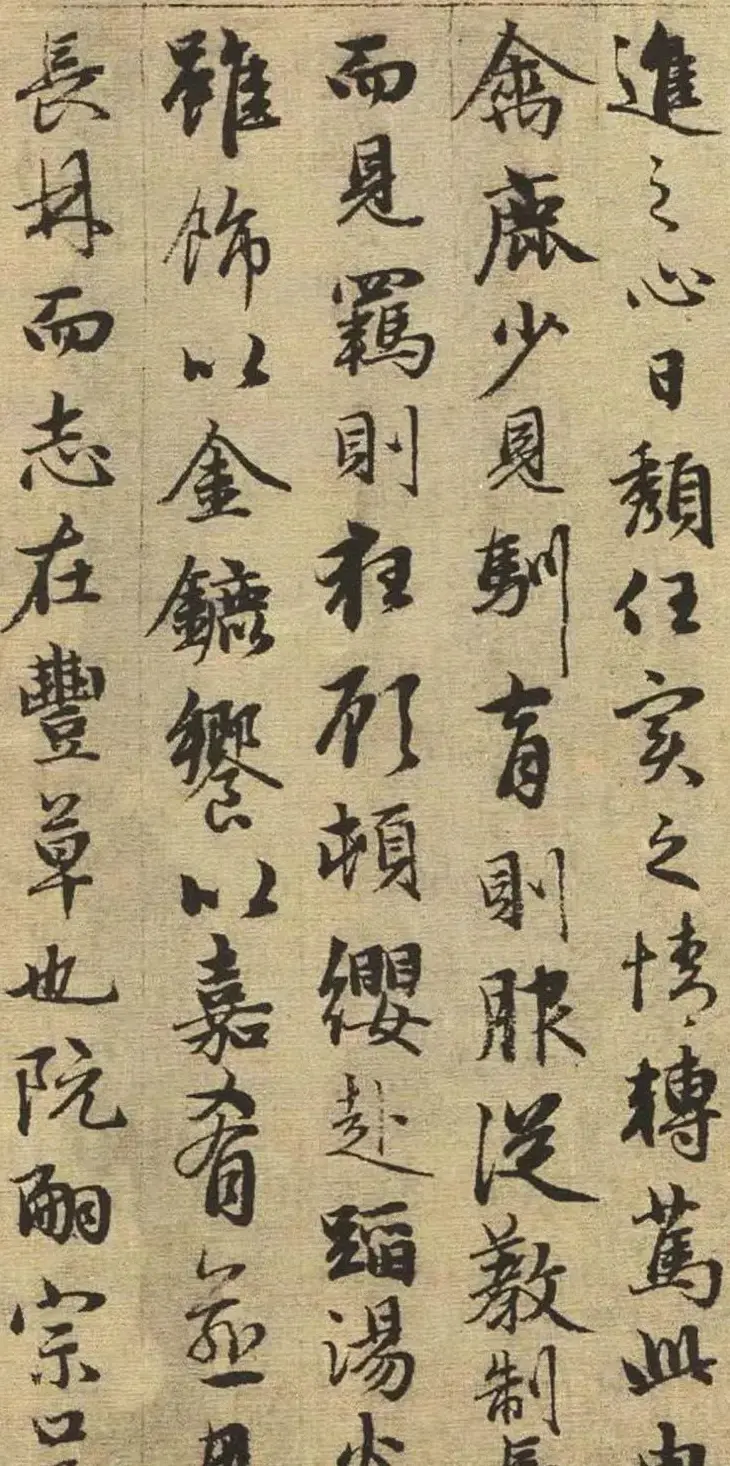 進之心日頹任实之情轉篤此由
禽鹿少見馴育則服從教制長
而見羈則狂顾頓纓赴蹈湯火
雖飾以金鑣饗以嘉肴逾思
長林而志在豐草也阮嗣宗口